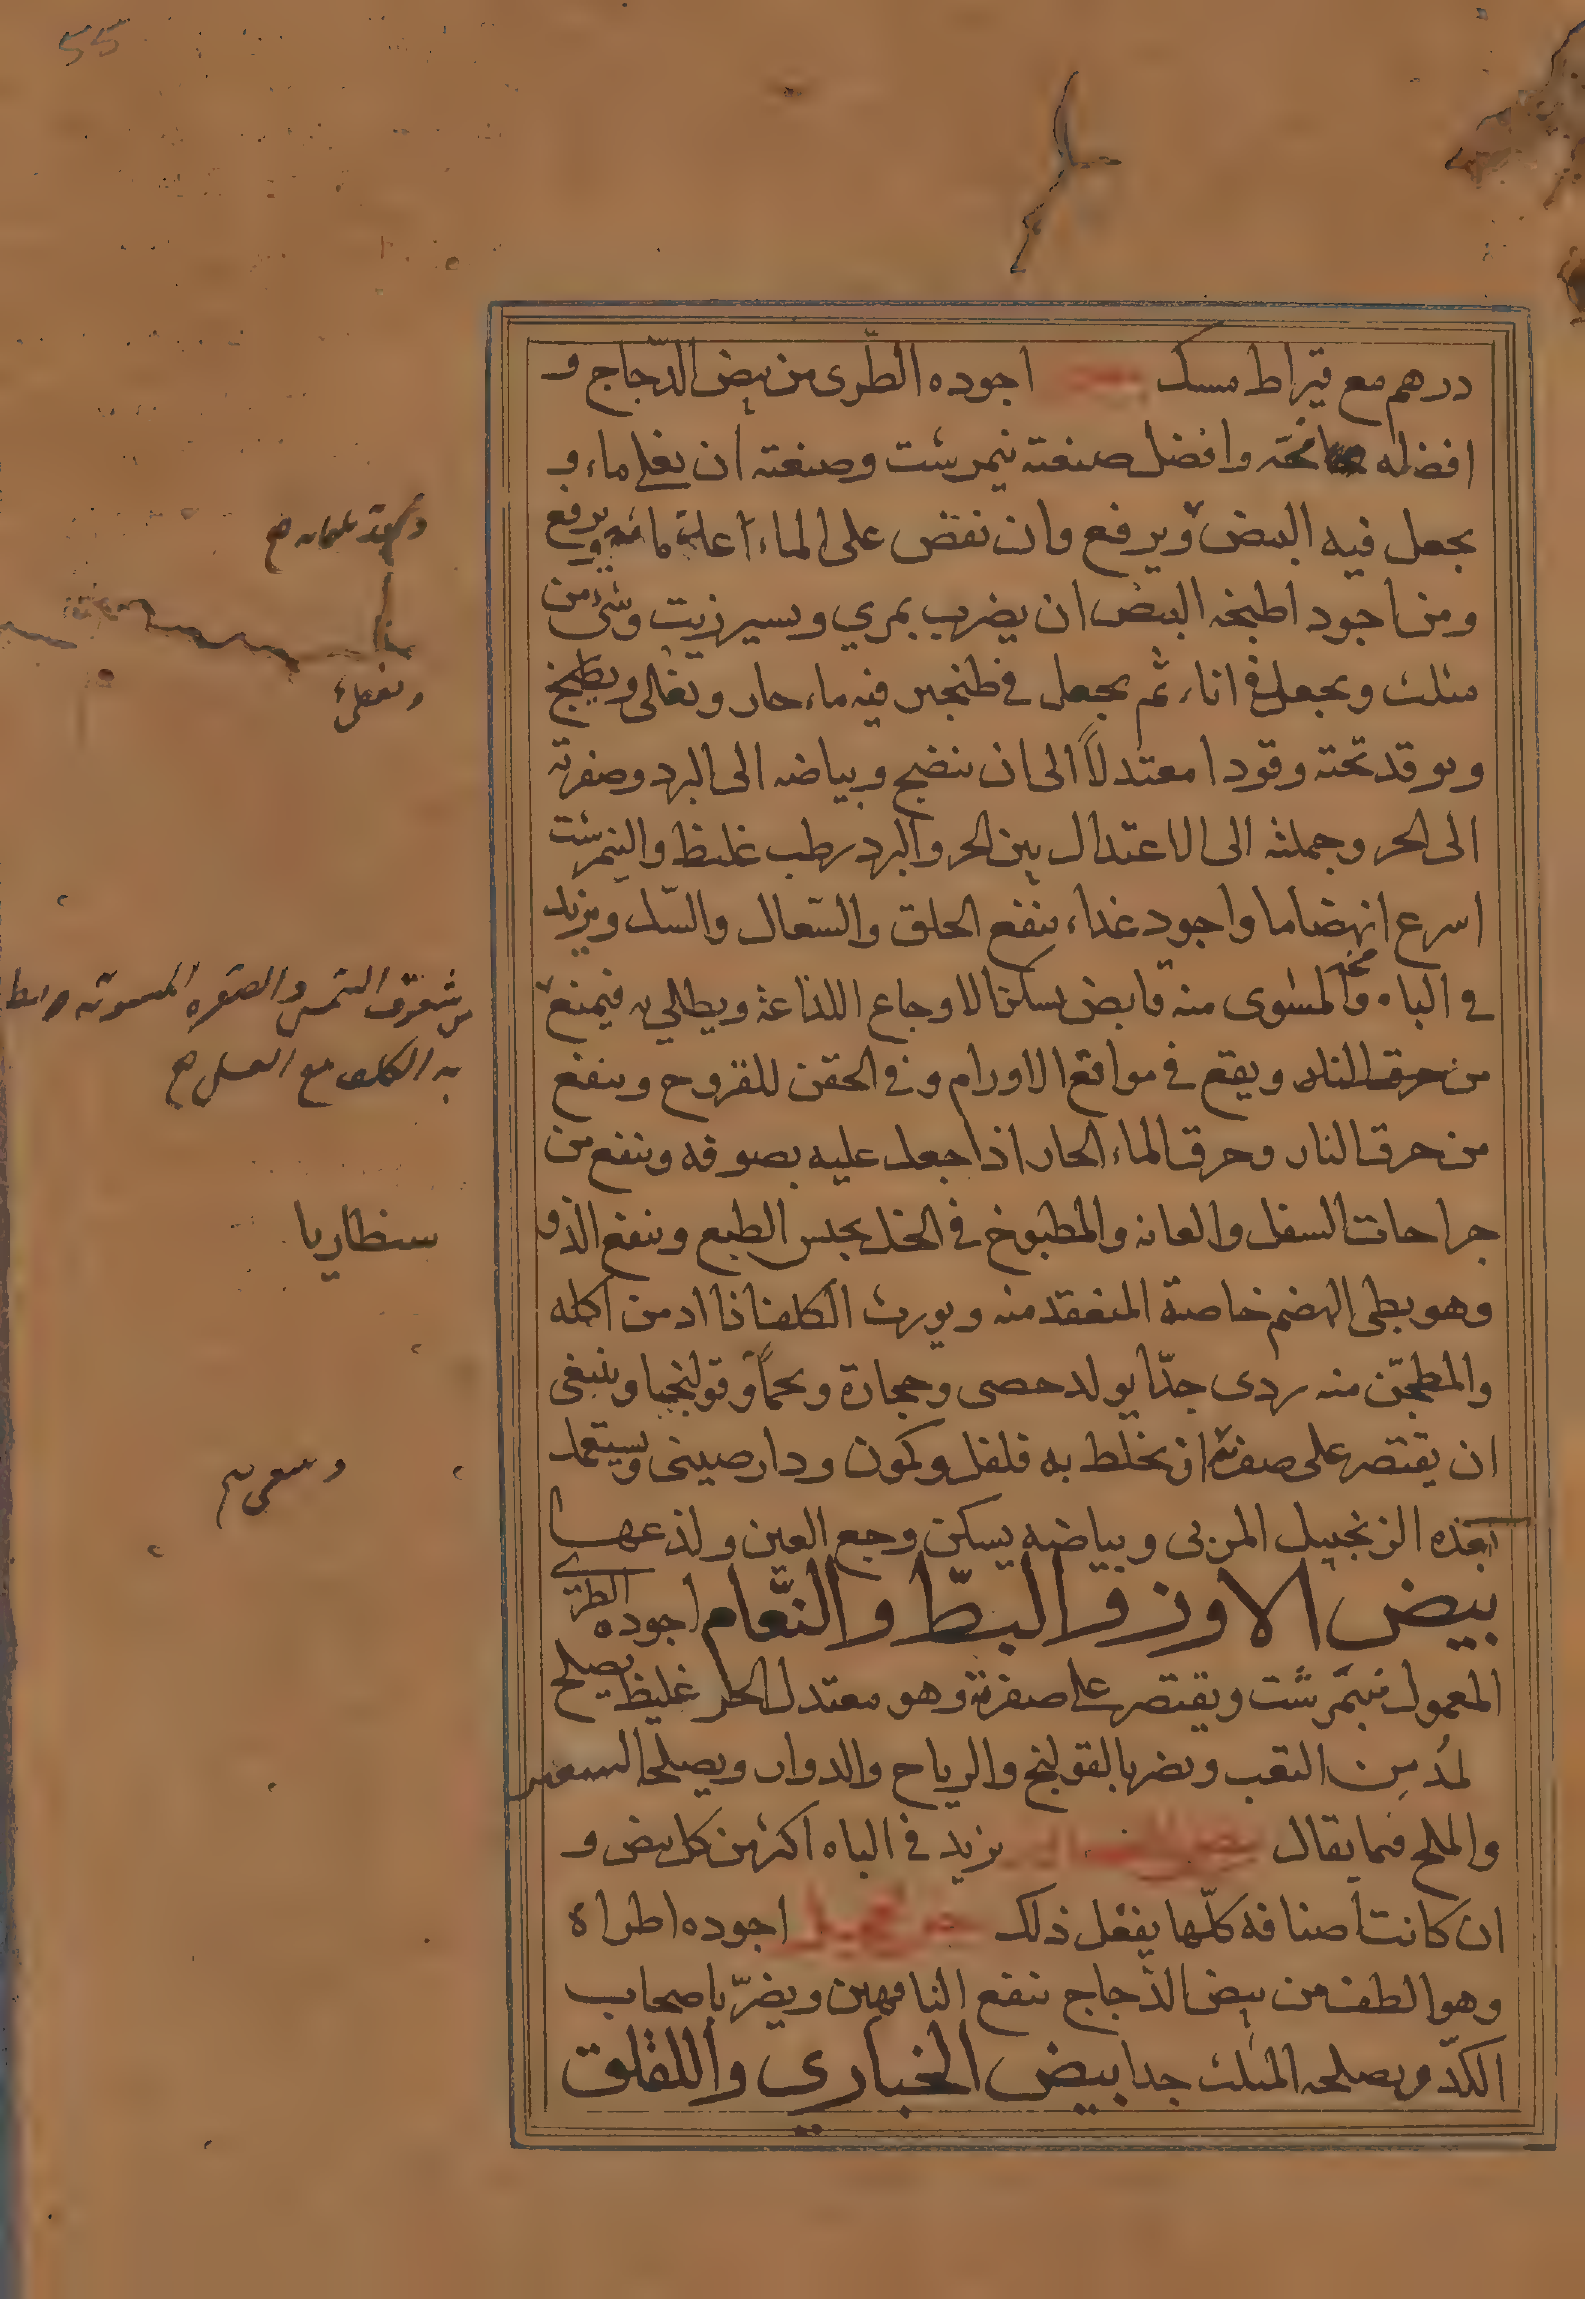 55
درهم مع قيراط مسك اجوده الطّرى من بيض الدّجاج و
افضله محّه وافضل صنعته نيمرشت وصنعته ان يغلى ماء و
يجعل فيه البيض ويرفع وان نقض على الماء اعلية مائة ويرفع
ومن اجود اطبخة البيض ان يضرب بمري ويسير زيت وشئ من
مثلث ويجعل في اناء ثم يجعل في طنجير فيه ماء حار وتغلى ويطبخ
ويوقد تحته وقودا معتدلاً الى ان ينضج وبياضه الى البرد وصفرته
الى الحر وجملته الى الاعتدال بين الحر والبرد رطب غليظ والنيمرشت
اسرع انهضاما واجود غذاء ينفع الحلق والسّعال والسّل ويزيد
في الباه ومحّه المشوى منه قابض يسكن الاوجاع اللذاعة ويطلى به فيمنع
من حرق النار ويقع في موانع الاورام وفي الحقن للقروح وينفع
من حرق النار وحرق الماء الحار اذا جعل عليه بصوفه وينفع من
جراحات السفل والعانه والمطبوخ في الخل يحبس الطبع وينفع الذو
وهو بطى الهضم خاصة المنعقد منه ويورث الكلف اذا ادمن اكله
والمطجّن منه ردى جدّا يولد حصى وحجارة وتخماً وقولنجا وينبغى
ان يقتصر على صفرته ان يخلط به فلفل وكمون ودارصينى ويستعمل
بعده الزنجبيل المربى وبياضه يسكن وجع العين ولذعها
بيض الاوز والبطّ والنّعام اجوده الطرى
المعمول نيمرشت ويقتصر على صفرته وهو معتدل الحر غليظ يصلح
لمُدمِن التعب ويضر بالقولنج والرياح والدوار ويصلحه السعتر
والملح فيما يقال يزيد في الباه اكثر من كل بيض و
ان كانت اصنافه كلّها يفعل ذلك اجوده اطراه
وهو الطف من بيض الدّجاج ينفع الناقهين ويضرّ باصحاب
الكدّ ويصلحه المثلث جدا بيض الحبارى واللقلق
به الكلف مع العسل صح
سنطاريا